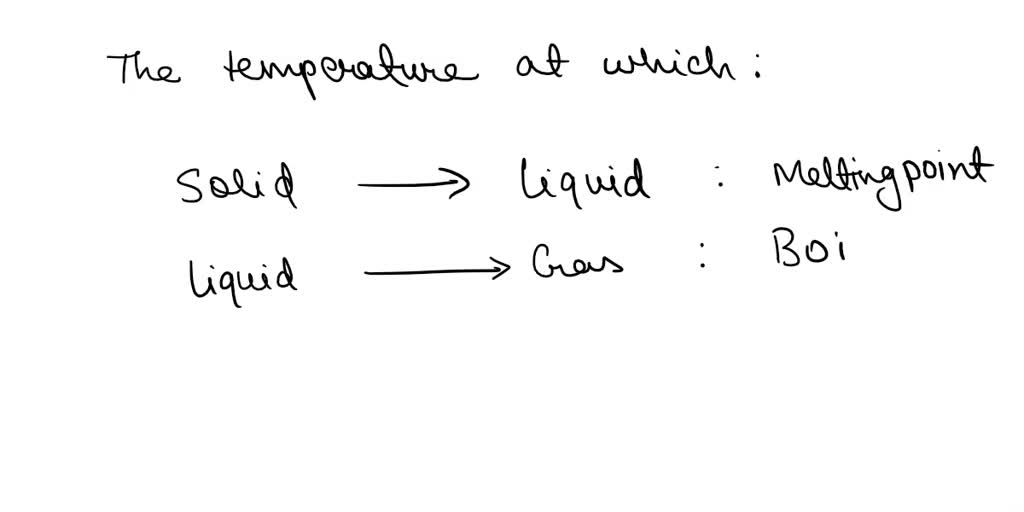 The temperature at which :
Solid → Liquid : Melting point
Liquid → Gas : Boi